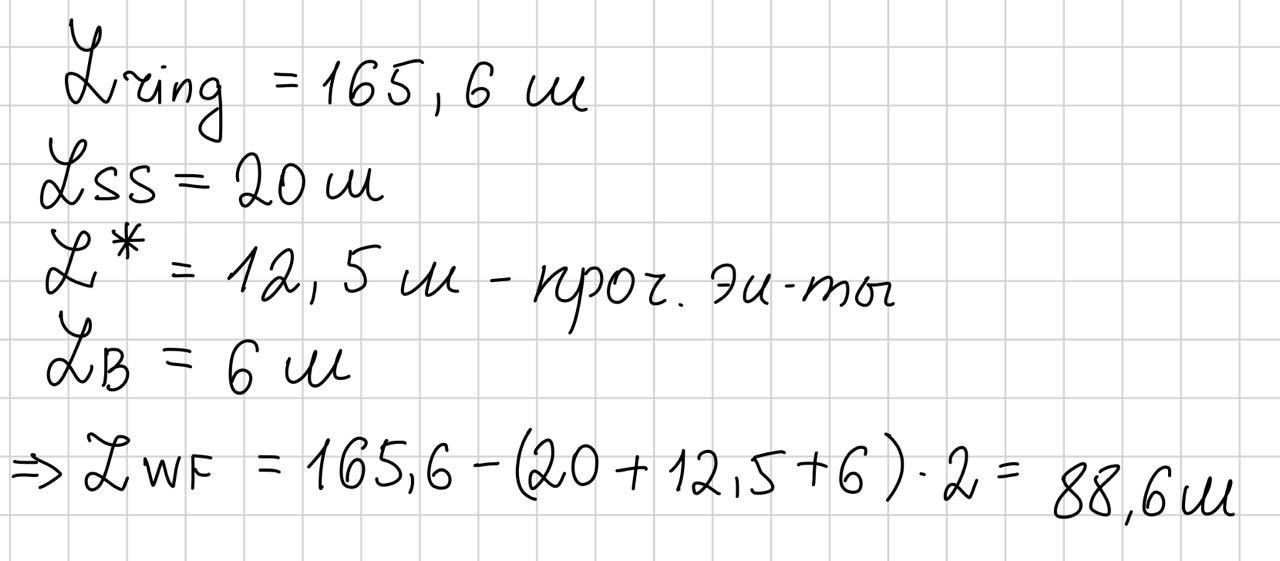 Lring = 165,6 м
Lss = 20 м
L* = 12,5 м - проч. эл-ты
LB = 6 м
⇒ LWF = 165,6 - (20 + 12,5 + 6) · 2 = 88,6 м